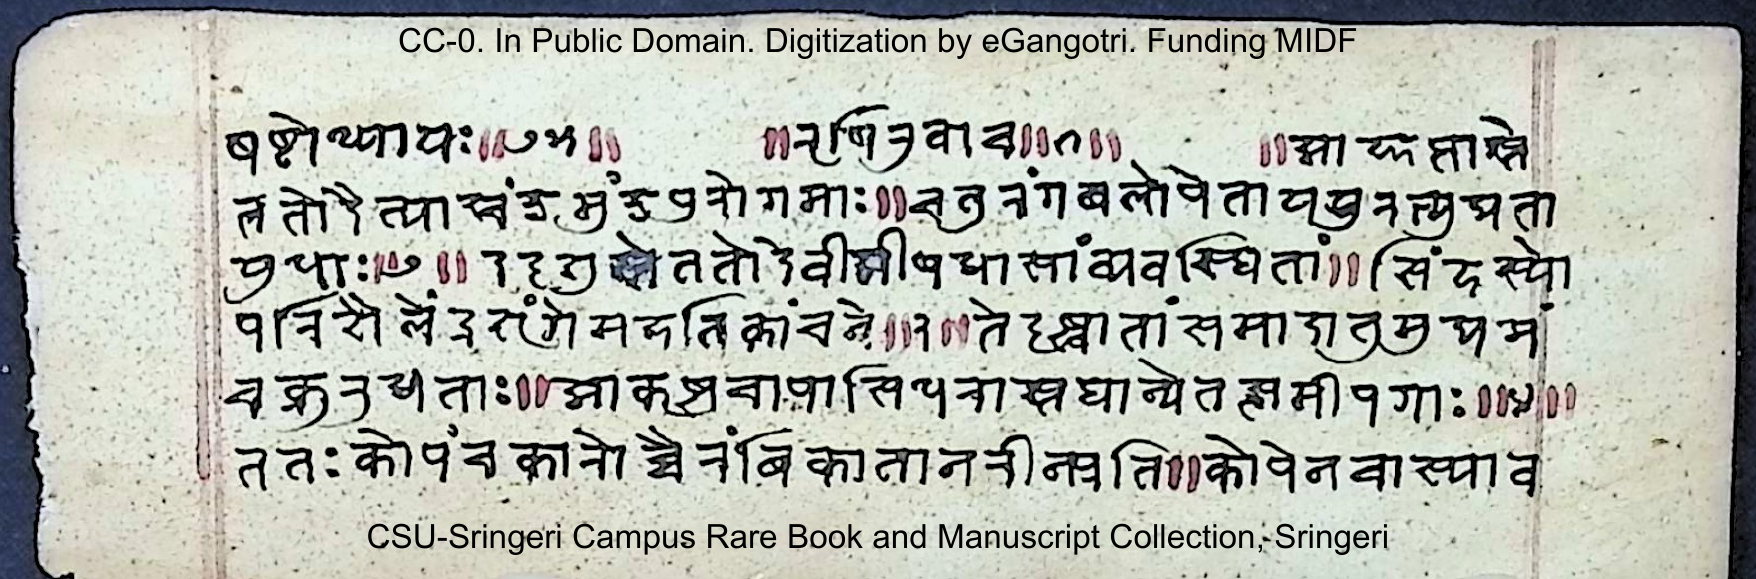 CC-0. In Public Domain. Digitization by eGangotri. Funding MIDF
षष्टोध्यायः ॥ ॥ ऋषिरुवाच ॥१॥ ॥ आज्ञप्तास्ते
ततो दैत्याश्चंडमुंडपुरोगमाः ॥ चतुरंगबलोपेता ययुरत्युद्यता
युधाः ॥ ॥ ददृशुस्ते ततो देवीमीषद्धासां व्यवस्थितां ॥ सिंहस्यो
परि शैलेंद्रशृंगे महति कांचने ॥३॥ ते दृष्ट्वा तां समादातुमुद्यमं
चक्रुरुद्यताः ॥ आकृष्टचापासिधरास्तथान्ये तत्समीपगाः ॥४॥
ततः कोपं चकारोच्चैरंबिका तानरीन्प्रति ॥ कोपेन चास्या व
CSU-Sringeri Campus Rare Book and Manuscript Collection, Sringeri